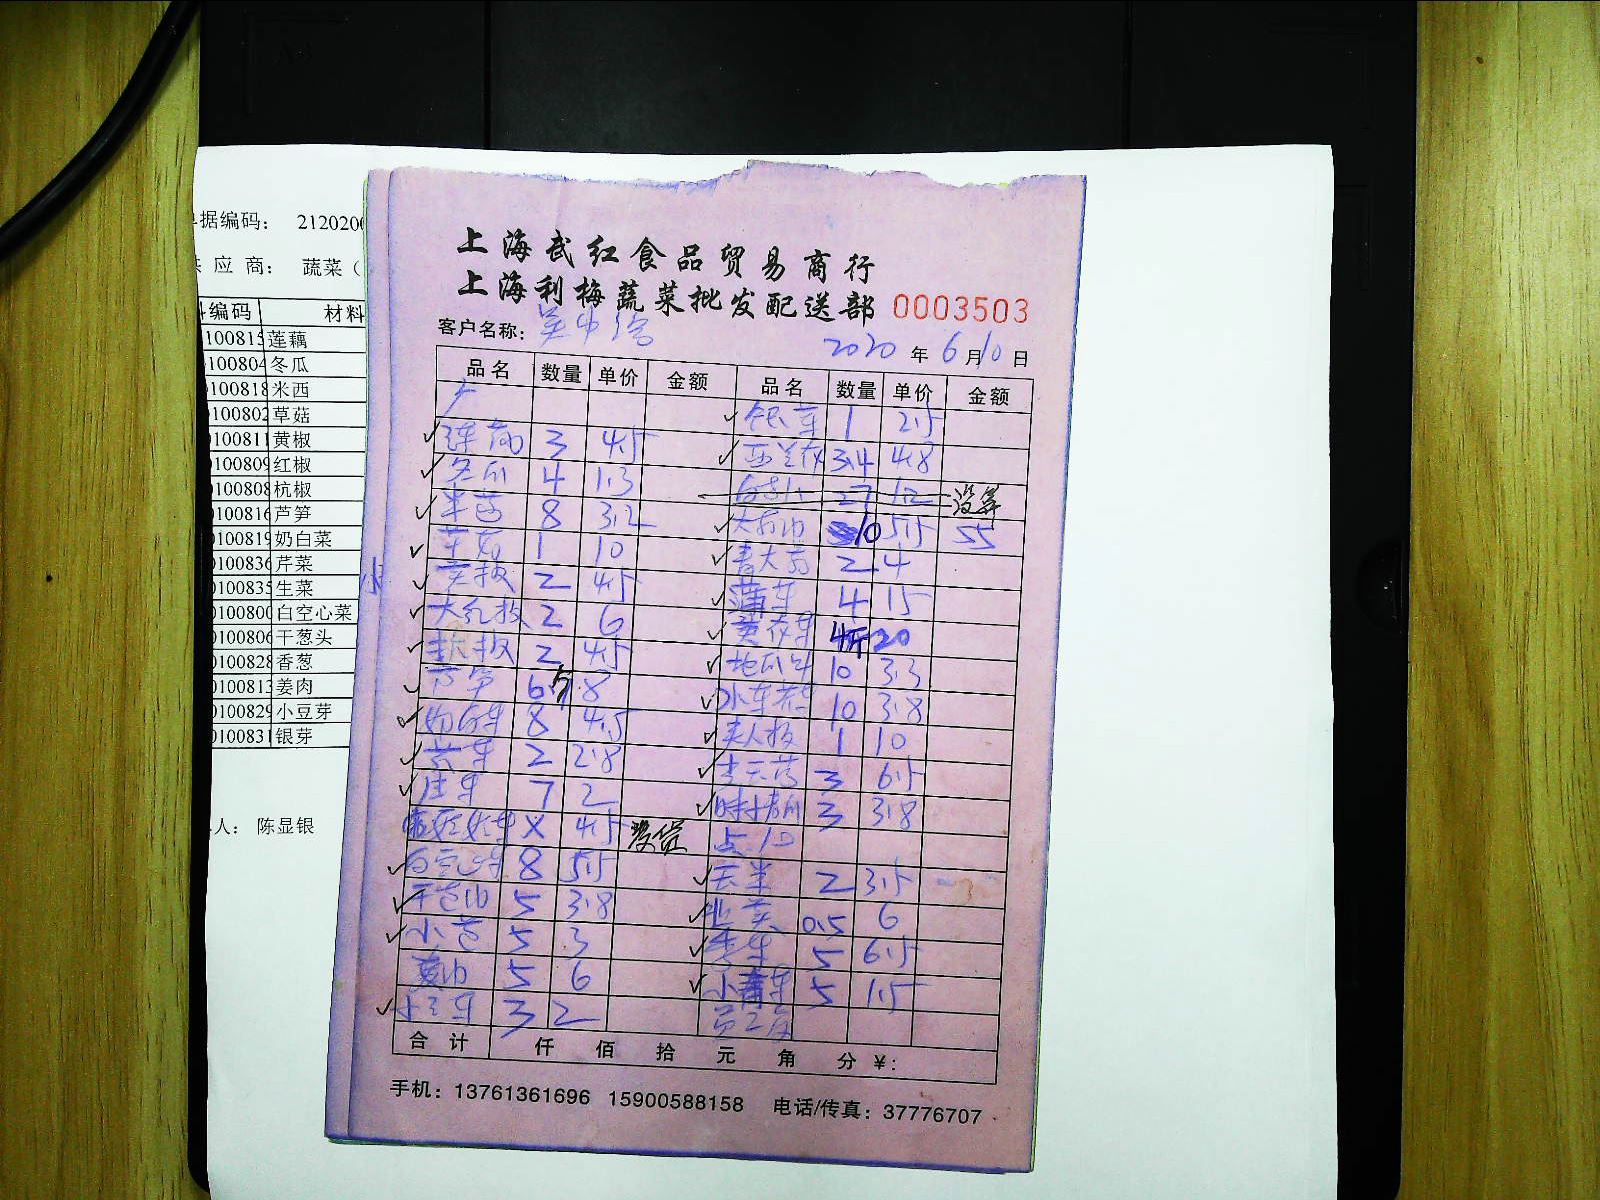 据编码： 2120200
应 商： 蔬菜（
编码 材料
100815 莲藕
100804 冬瓜
100818 米西
0100802 草菇
0100811 黄椒
0100809 红椒
0100808 杭椒
0100816 芦笋
0100819 奶白菜
0100836 芹菜
0100835 生菜
0100800 白空心菜
0100806 干葱头
0100828 香葱
0100813 姜肉
0100829 小豆芽
0100831 银芽
人： 陈显银
上海武红食品贸易商行
上海利梅蔬菜批发配送部 0003503
客户名称：
2020 年 6 月 10 日
品名 数量 单价 金额 品名 数量 单价 金额
银芽 1 2.5
莲藕 3 4.5 西兰花 3.4 4.8
冬瓜 4 1.3 27 1.2 没算
米西 8 3.2 10 5.5 55
草菇 1 10 2 4
黄椒 2 4.5 4 15
大红椒 2 6 黄花菜 4斤 20
杭椒 2 4.5 地瓜 10 3.3
芦笋 6斤 8 10 3.8
奶白菜 8 4.5 美人椒 1 10
芹菜 2 2.8 3 6.5
生菜 7 2 3 3.8
X 4.5 没货 点心
白空心菜 8 5.5 2 3.5
干葱头 5 3.8 韭黄 0.5 6
小葱 5 3 5 6.5
姜肉 5 6 小青菜 5 1.5
小豆芽 3 2 员工房
合 计 仟 佰 拾 元 角 分 ￥：
手机：13761361696 15900588158 电话/传真：37776707